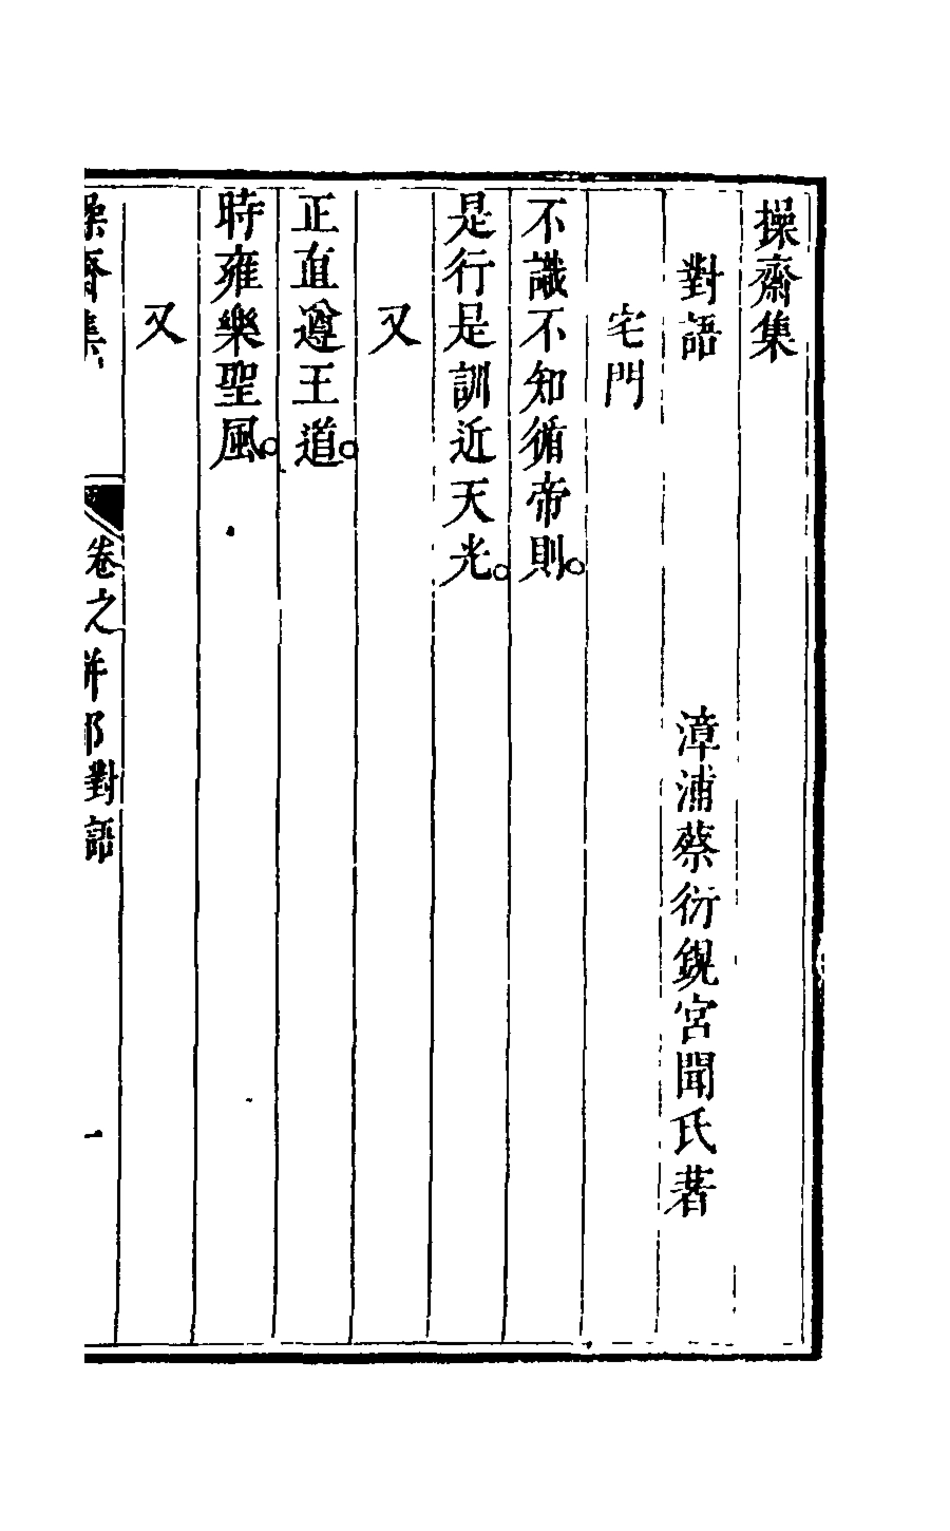 操齋集
對語
漳浦蔡衍鎤宮聞氏著
宅門
不識不知循帝則。
是行是訓近天光。
又
正直遵王道。
時雍樂聖風。
又
操齋集
卷之
部對語
一